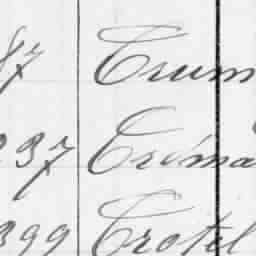 87 Crum
237 Créma
399 Crotel